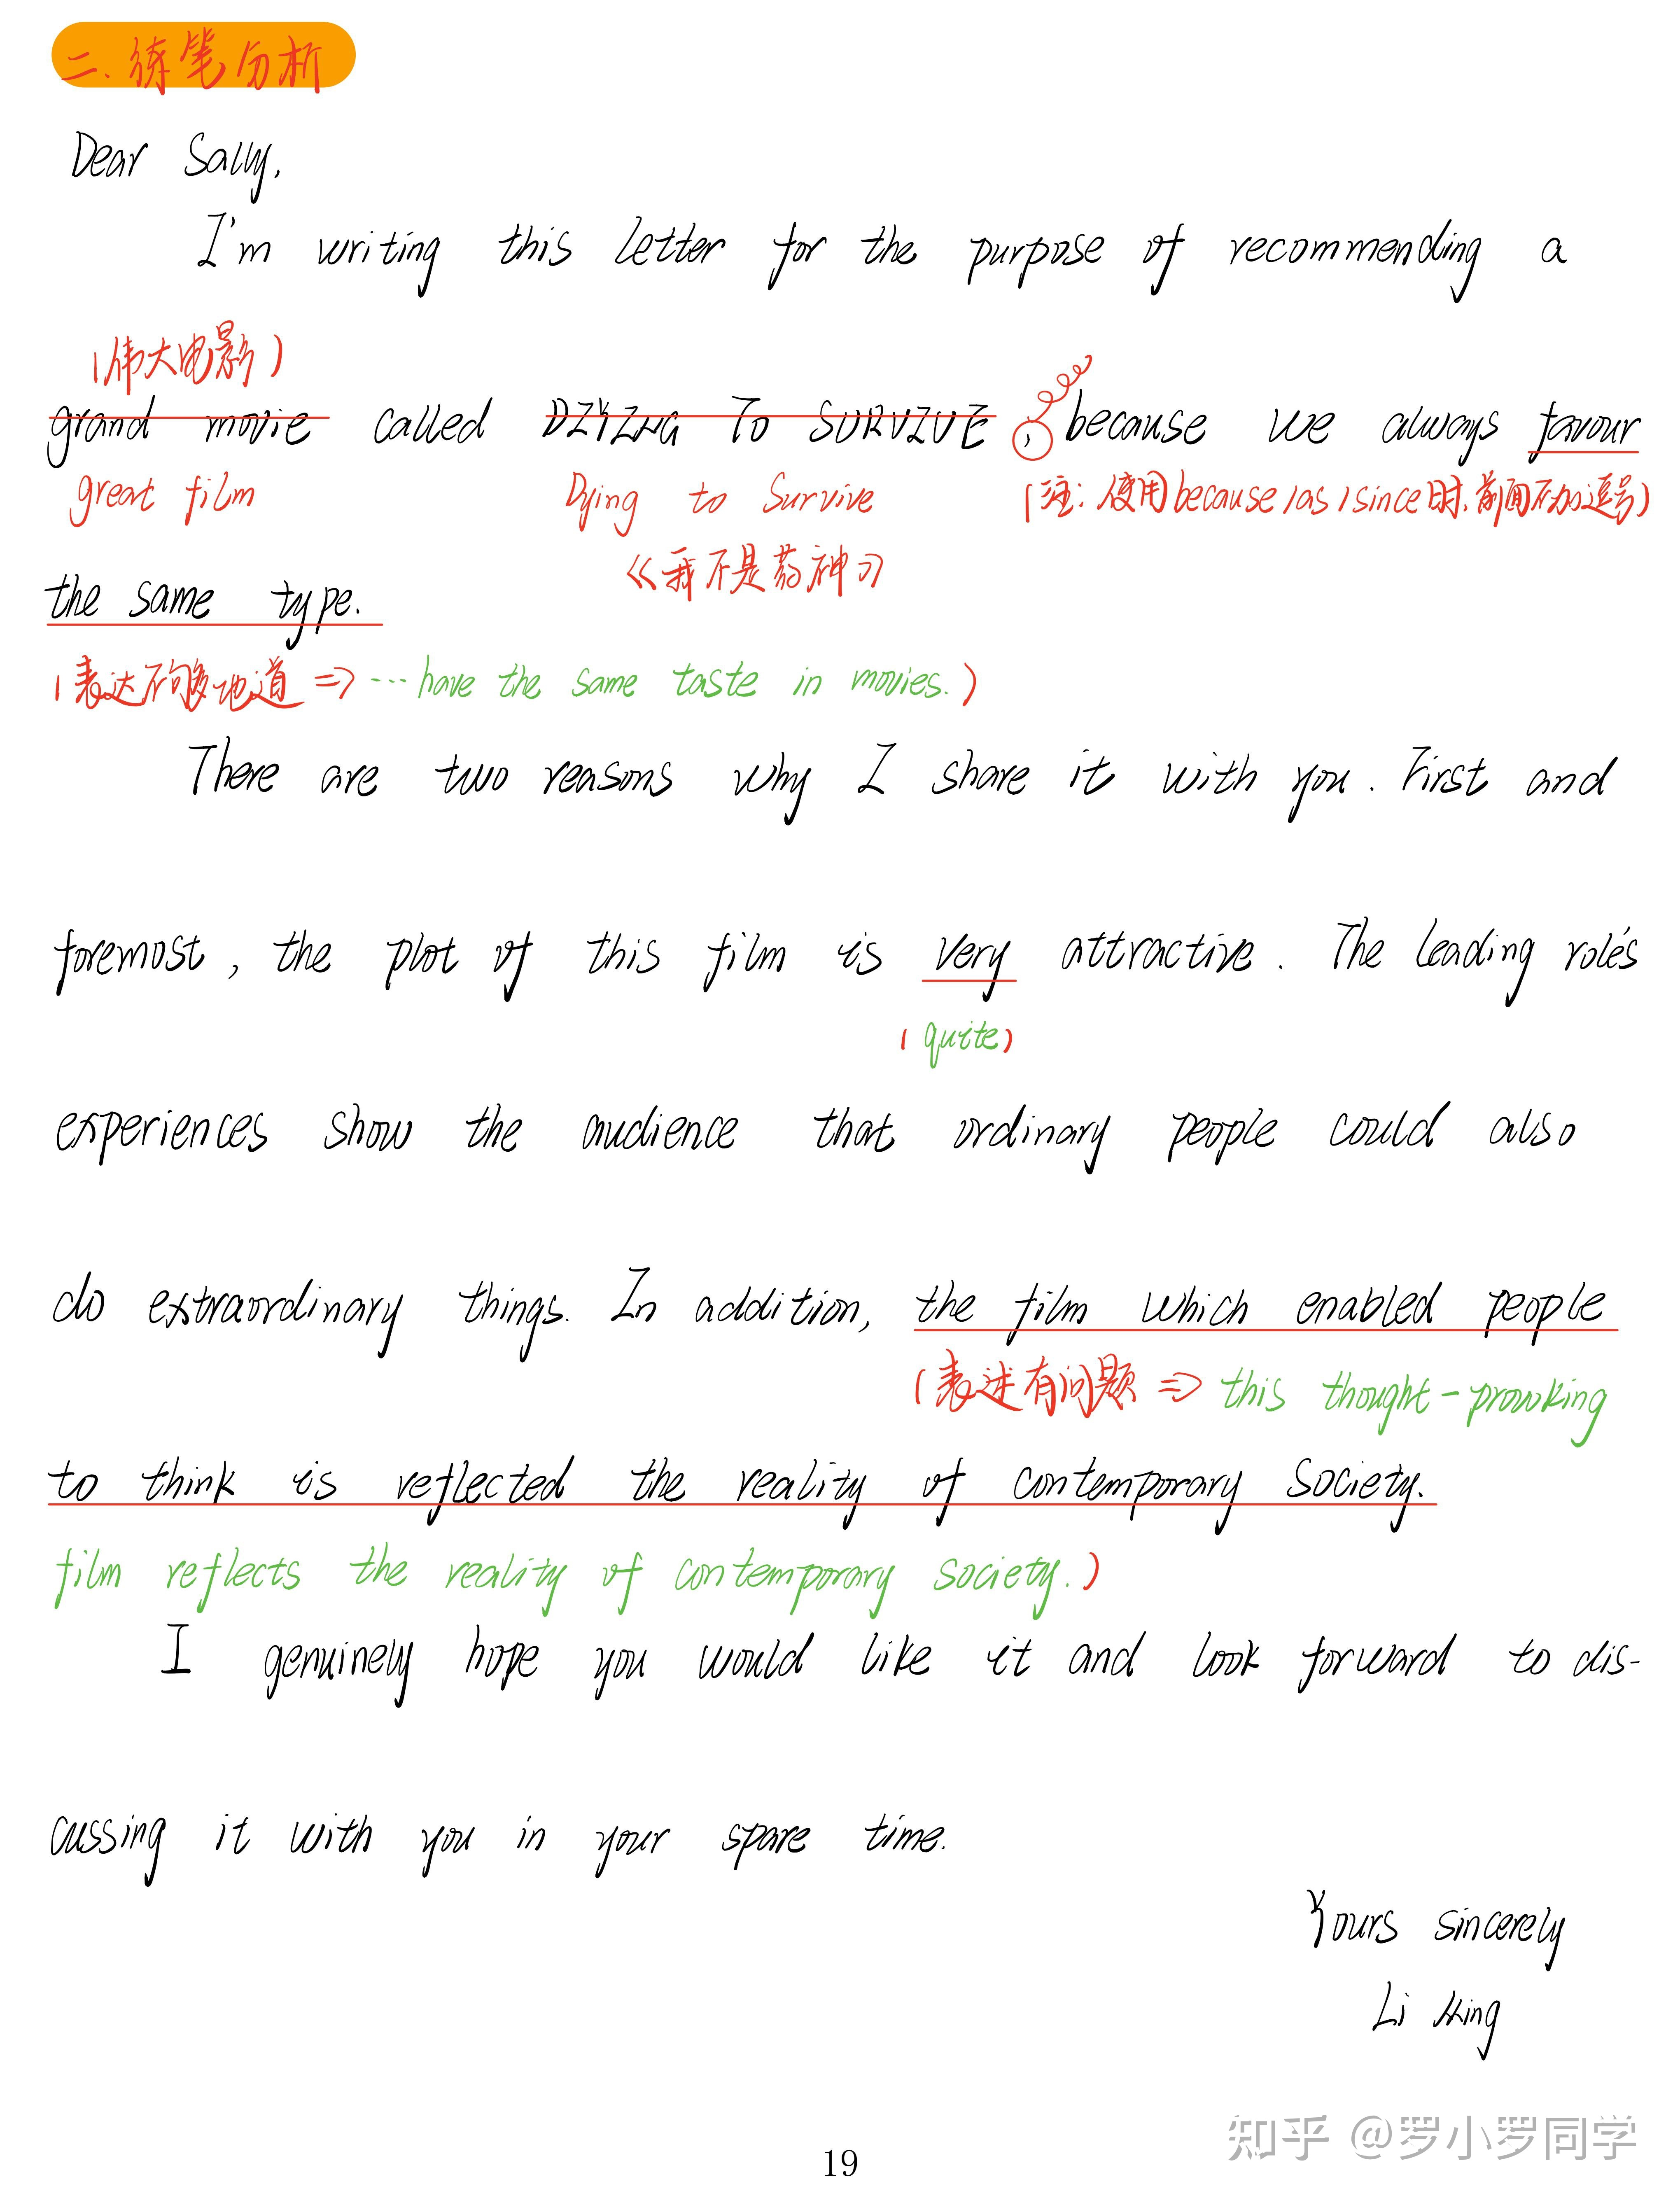 二.练笔分析
Dear Sally,
I'm writing this letter for the purpose of recommending a
(伟大电影)
grand movie called DIYING TO SURVIVE , because we always favour
great film Dying to Survive (注:使用because/as/since时,前面不加逗号)
《我不是药神》
the same type.
(表达不够地道 => ···have the same taste in movies.)
There are two reasons why I share it with you. First and
foremost, the plot of this film is very attractive. The leading role's
(quite)
experiences show the audience that ordinary people could also
do extraordinary things. In addition, the film which enabled people
(表述有问题 => this thought-provoking
to think is reflected the reality of contemporary society.
film reflects the reality of contemporary society.)
I genuinely hope you would like it and look forward to dis-
cussing it with you in your spare time.
Yours sincerely
Li Ming
知乎 @罗小罗同学
19